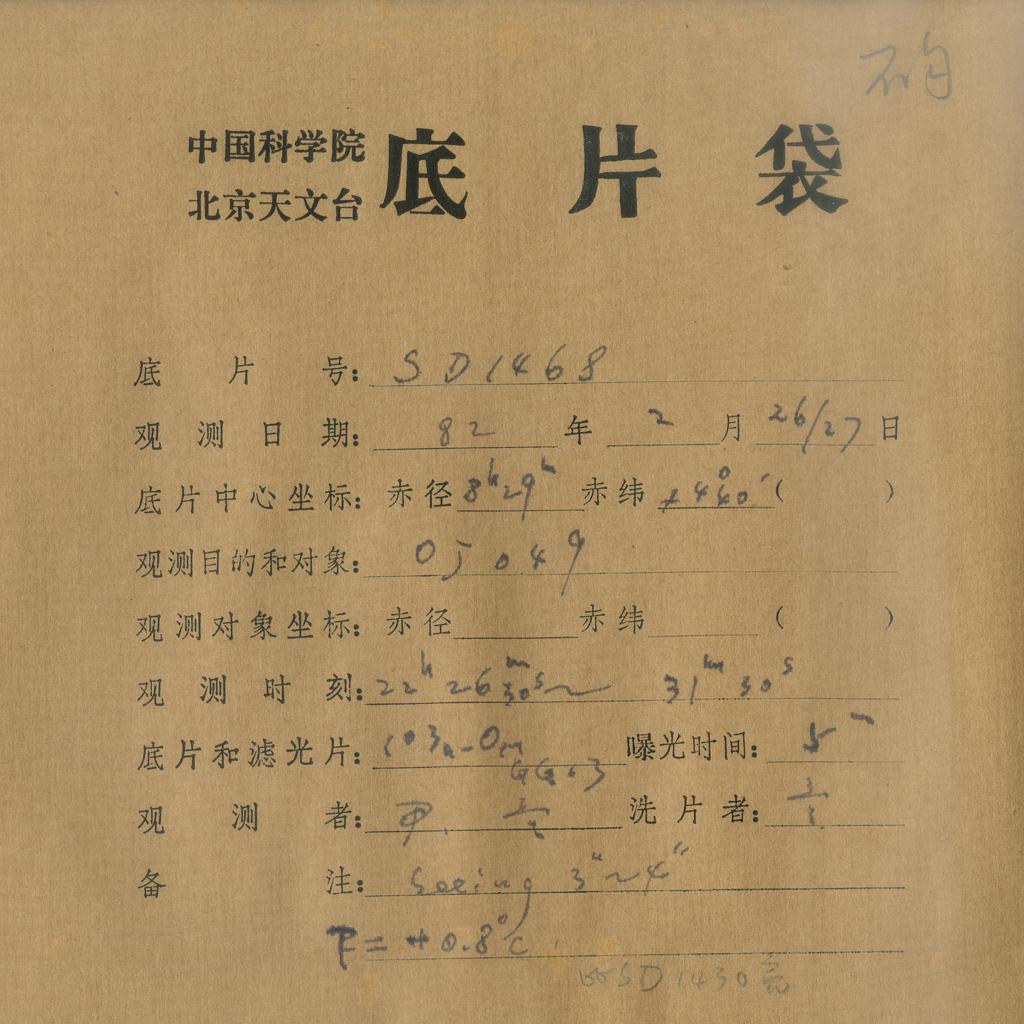 中国科学院
北京天文台
底片袋
底片号：SD1468
观测日期：82年2月26/27日
底片中心坐标：赤径8h29m赤纬+4°40′（　　）
观测目的和对象：OJ 049
观测对象坐标：赤径　　赤纬　　（　　）
观测时刻：22h 26m30s～ 31m 30s
底片和滤光片：103a-O 曝光时间：5m
观测者： 洗片者：
备注：Seeing 3″～4″
T = +0.8°C
SD1430